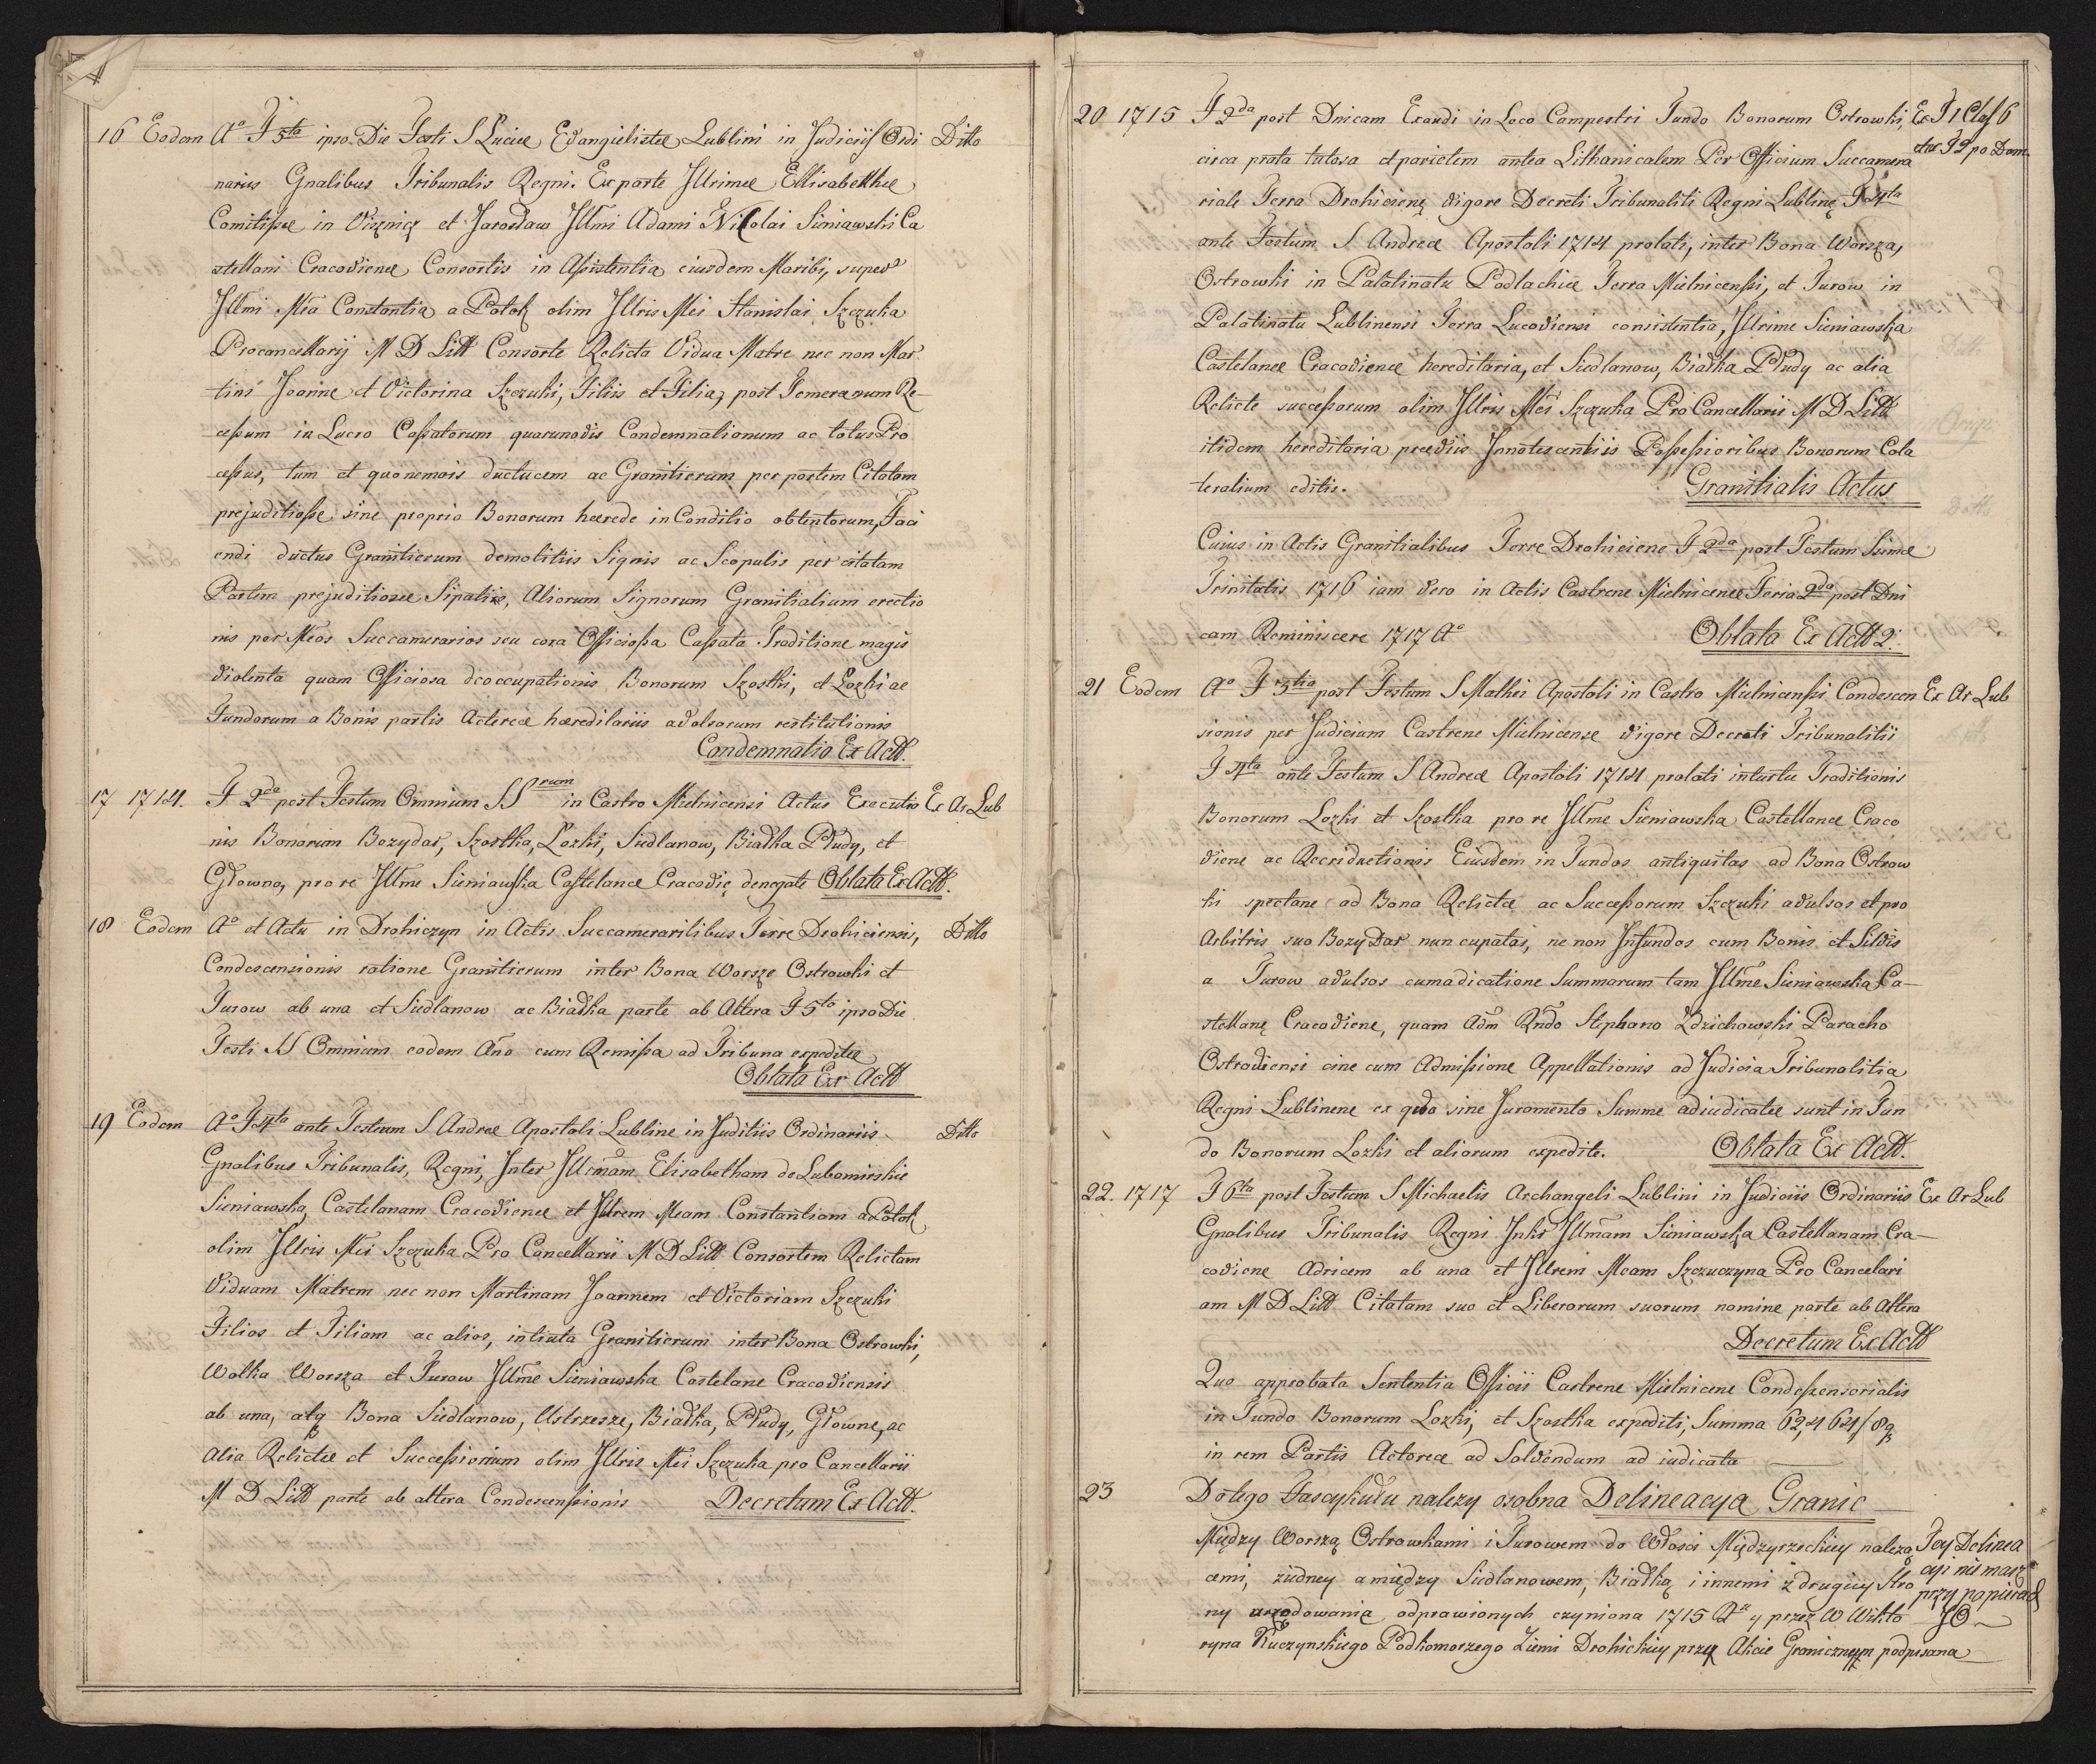 16 Eodem Aº F 5ta ipso Die Festi S Luciæ Evangielistæ Lublini in Judiciis Ordi Ditto
narius Gnalibus Tribunalis Regni. Ex parte Jllrimæ Ellisabethæ
Comitissæ in Visznicz et Jarosław Jllmi Adami Nicolai Siniawski Ca
stellani Cracoviencæ Consortis in Assistentia eiusdem Mariti, super
Jllmi Mea Constantia a Potok olim Jllris Mei Stanislai Szczuka
Procancellarij M D Litt Consorte Relicta Vidua Matre nec non Mar
tins Joanne et Victorina Szczuki, Filiis et Filia, post Temerarum Re-
cessum in Lucro Cassatorum quarunovis Condemnationum ac totus Pro
cessus, tum et quonemois ductucem ac Granitierum per partem Citatam
prejuditiosse sine proprio Bonorum hærede in Conditio obtentorum, Faci
endi ductus Granitierum demolitiis Signis ac Scopulis per citatam
Partem prejuditiosæ Sipatiis, Aliorum Signorum Granitialium erectio
nis per Meos Succamerarios seu cora Officiossa Cassata Traditione magis
violenta quam Officiosa deoccupationis Bonorum Szostki, et Łozki ac
Fundorum a Bonis partis Actoreæ hæreditariis advlsorum restitutionis
Condemnatio Ex Actt.
17 1714. F 2da post Festum Omnium SSrum in Castro Mielnicensi Actus Executio Ex Ar Lub
nis Bonorum Bozydar, Szostka, Łozki, Sudlanow, Białka Płudy, et
Głowno, pro re Jllme Sieniawska Castelanæ Cracovię denegate Oblata Ex Actt.
18 Eodem Aº et Actu in Drohiczyn in Actis Succamerarilibus Terre Drohiciensis, Ditto
Condescensionis ratione Granitierum inter Bona Worsze Ostrowki et
Turow ab una et Siedlanow ac Białka parte ab Altera F 5to ipso Die
Festi SS Omnium eodem Ano cum Remissa ad Tribuna expeditæ
Oblata Ex Actt
19 Eodem Aº F 4ta ante Festum S Andreæ Apostoli Lubline in Juditiis Ordinariis Ditto
Gnalibus Tribunalis, Regni, Inter Jllrmam Elisabetham de Lubomirskie
Sieniawska, Castelanam Cracoviencæ et Jllrem Meam Constantiam a Potok
olim Jllris Mei Szczuka Pro Cancellarii M D Litt Consortem Relictam
Viduam Matrem nec non Martinam Joannem et Victoriam Szczuki
Filios et Filiam ac alios, intiuta Granitierum inter Bona Ostrowki,
Wolka Worsza et Turow Jllme Sieniawska Castelane Cracoviensis
ab una, atq Bona Siedlanow, Ustrzesze, Białka, Płudy, Głowne, ac
Alia Relictæ et Successionum olim Jllris Mei Szczuka pro Cancellarii
M D Litt parte ab altera Condescenssionis Decretum Ex Actt.
20 1715 F 2da post Dnicam Exaudi in Loco Campestri Fundo Bonorum Ostrowki, Ex F 1 Clas 6
circa prata tutosa et parietem antea Lithanicalem Per Officium Succamera
riale Terra Drohicienę vigore Decreti Tribunaliti Regni Lublinę F 4ta
ante Festum S Andreæ Apostoli 1714 prolati, inter Bona Worsza,
Ostrowki in Palatinatu Podlachiæ Terra Mielnicenssi, et Turow in
Palatinatu Lublinensi Terra Lucoviensi consistentia, Jllrime Sieniawska
Castelanæ Cracoviencæ hereditaria, et Siedlanow, Białka Płudy ac alia
Relicte successorum olim Jllris Mei Szczuka Pro Cancellarii M D Litt
itidem hereditaria præviis Innotescentiis Possessioribus Bonorum Cola
teralium editis. Granitialis Actus
Cuius in Actis Granitialibus Terre Drohiciene F 2da post Festum Sumæ
Trinitatis 1716 iam vero in Actis Castrene Mielnicencæ Feria 2da post Dni
cam Reminiscere 1717 Aº Oblata Ex Actt 2.
21 Eodem Aº F 3tia post Festum S Mathei Apostoli in Castro Mielnicenssi Condescen Ex Ar Lub
sionis per Judicium Castrene Mielnicense vigore Decreti Tribunalitii
F 4ta ante Festum S Andreæ Apostoli 1714 prolati intuitu Traditionis
Bonorum Łozki et Szostka pro re Jllme Sieniawska Castellanæ Craco
viene ac Recriductionis Eiusdem in Fundos antiquitas ad Bona Ostrow
ki spectane ad Bona Relictæ ac Successorum Szczuki advlsos et pro
Arbitris suo Bozy Dar nun cupatas, ne non Infundos cum Bonis et Silvis
a Turow advlsos cumadicatione Summarum tam Jllme Sieniawska Ca-
stellanę Cracoviene, quam Adm Rndo Stephano Zdzichowski Paracho
Ostroviensi cine cum Admissione Appellationis ad Judicia Tribunalitia
Regni Lublinene ex quo sine Juromento Summe adiudicatæ sunt in Fun
do Bonorum Łozki et aliorum expedite. Oblata Ex Actt.
22. 1717 F 6ta post Festum S Michaelis Archangeli Lublini in Judiciis Ordinariis Ex Ar Lub
Gnalibus Tribunalis Regni Inter Jllmam Sieniawska Castellanam Cra-
coviene Adricem ab una et Jllrem Meam Szczuczyna Pro Cancelari
am M D Litt Citatam suo et Liberorum suorum nomine parte ab Altera
Decretum Ex Actt
Quo approbata Sententia Officii Castrene Mielnicene Condessensorialis
in Fundo Bonorum Łozki, et Szostka expediti, Summa
in rem Partis Actoreæ ad Solvendum ad iudicata
23 Do tego Fascykułu nalezy osobna Delineacya Granic
Między Worszą Ostrowkami i Turowem do Włosci Międzyrzeckiey należą Tey Delinea
cemi, zidney a między Siedlanowem, Białką i innemi z drugiey Stro cyi nie masz
ny urzędowania odprawionych czyniona 1715 Ru y przez W Wikto przy papierach
ryna Kuczynskiego Podkomorzego Ziemi Drohickiey przy Akcie Granicznym podpisana